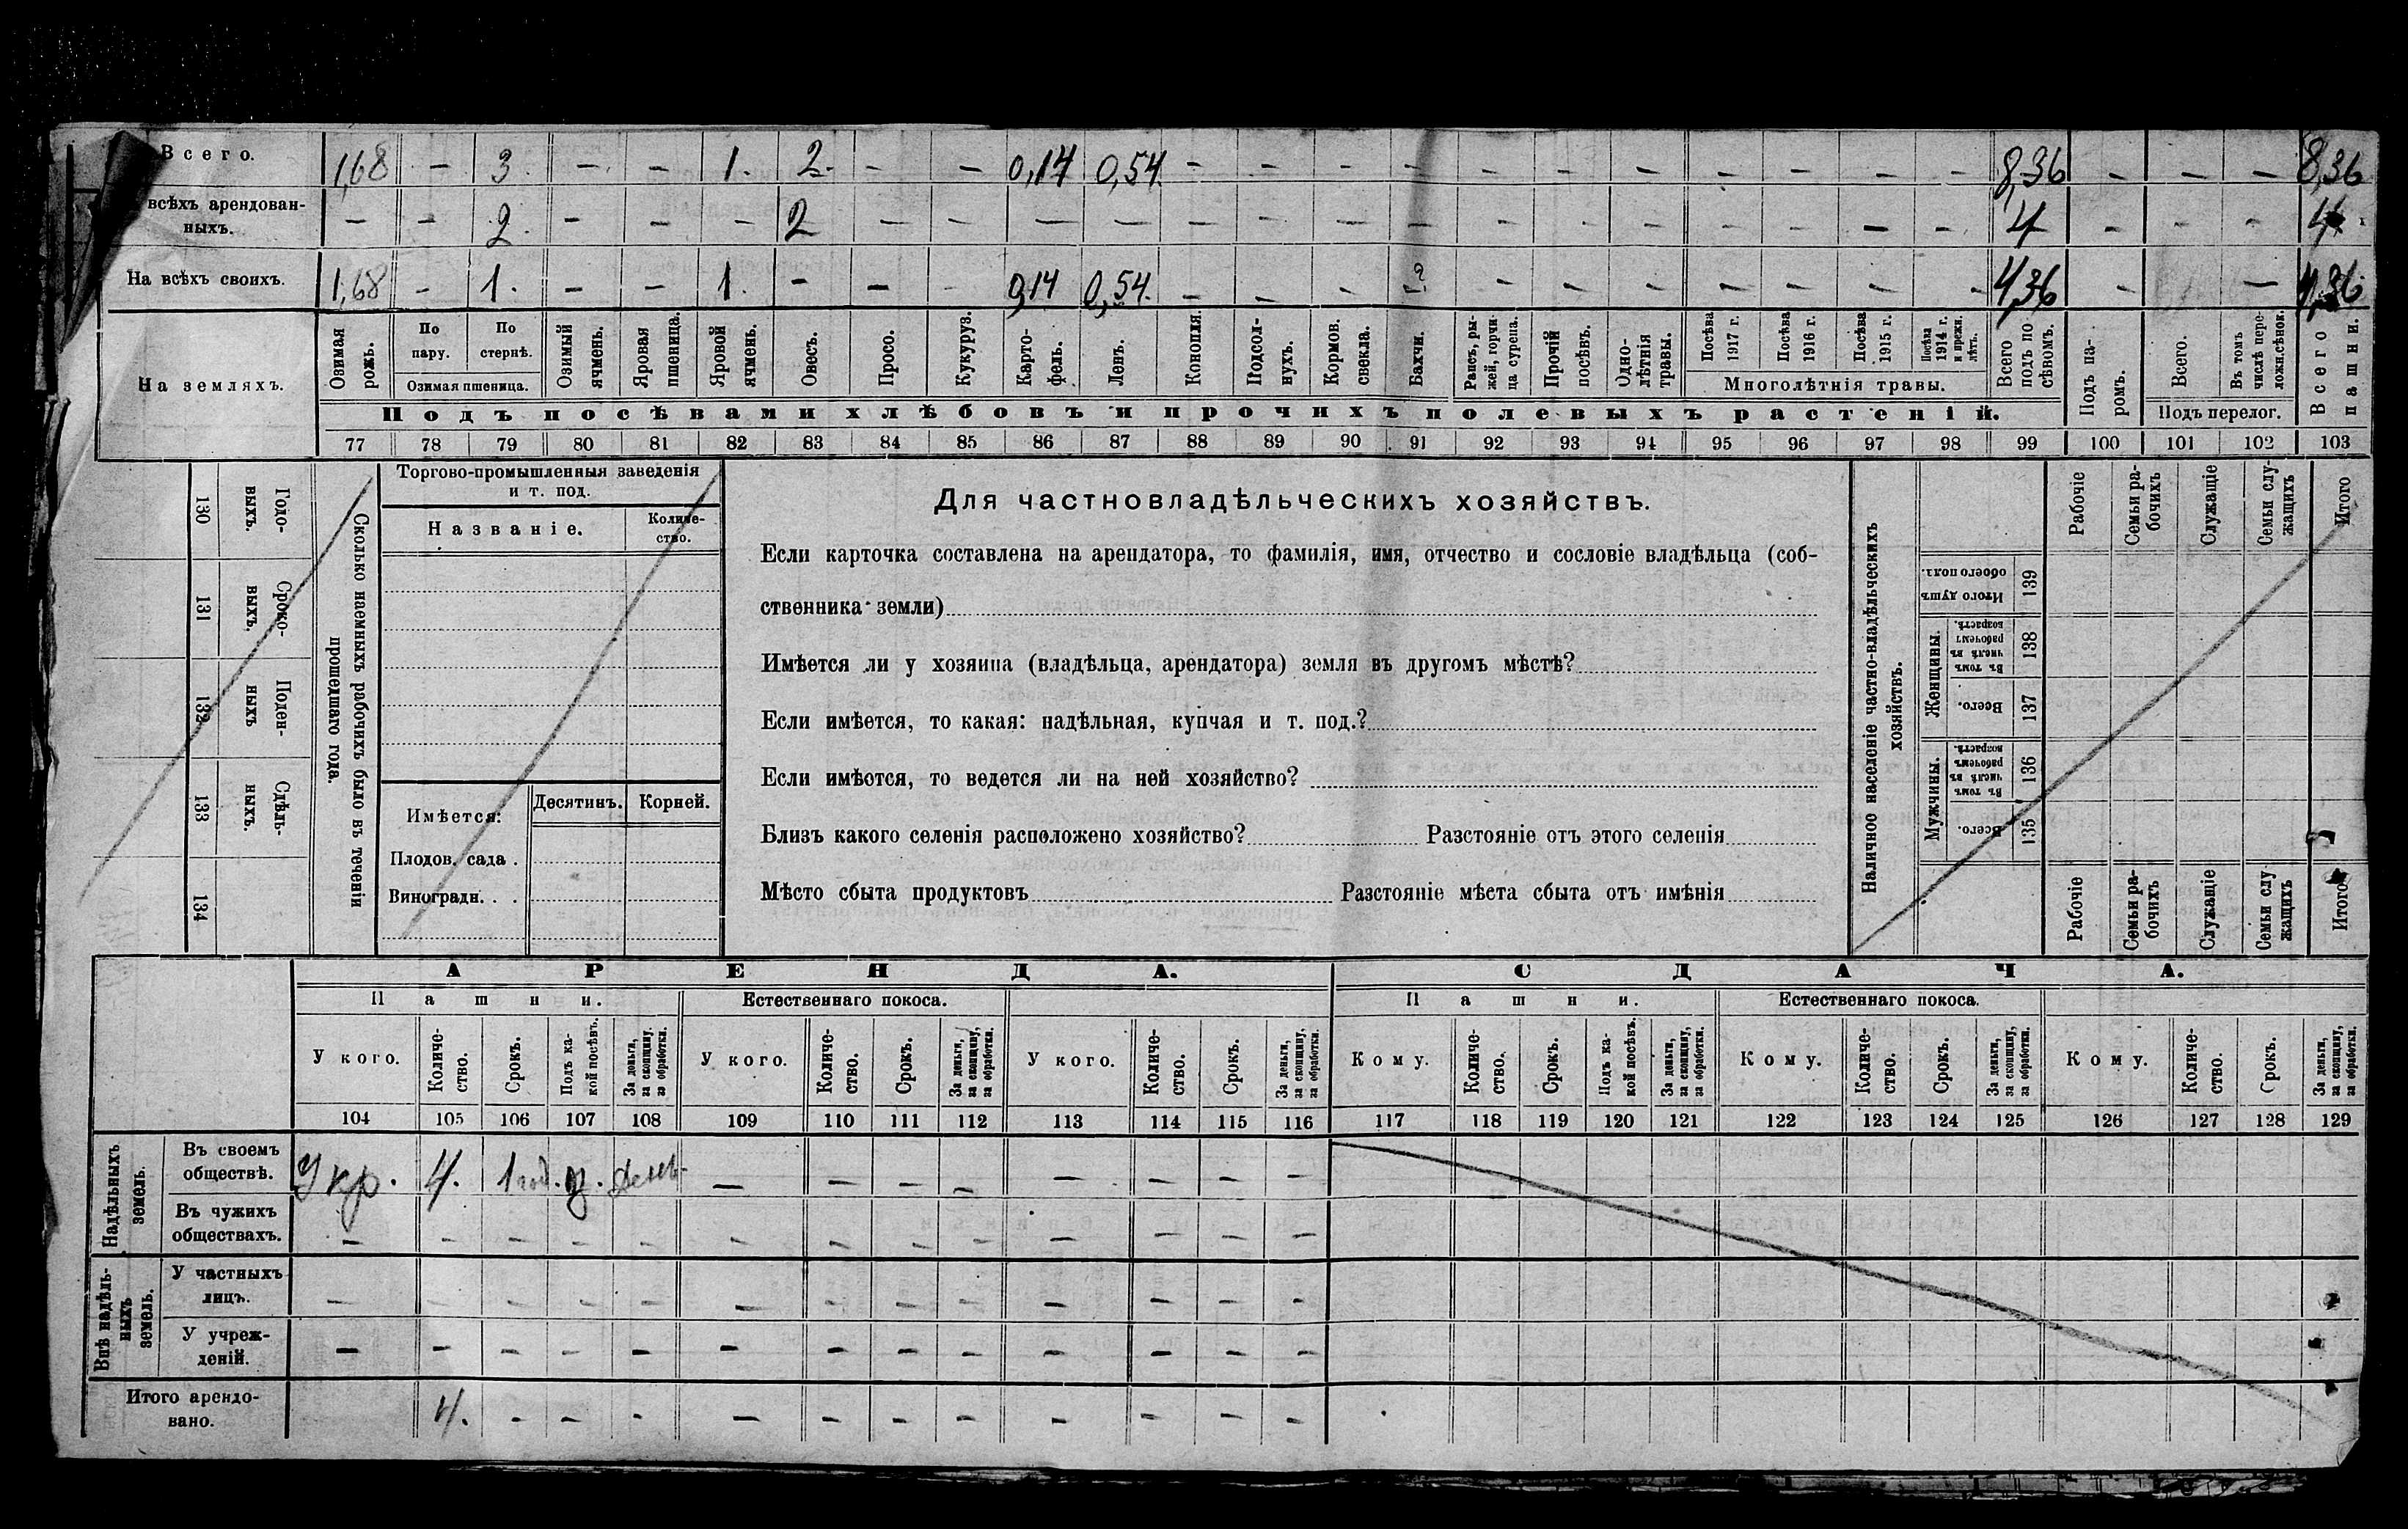 Всего. 1,68 – 3. – – 1. 2. – – 0,14 0,54. – – – – – – – – – – – 8,36 – – – 8,36
всѣхъ арендован-
ныхъ. – – 2. – – – 2 – – – – – – – – – – – – – – – 4 – – – 4
На всѣхъ своихъ. 1,68 – 1. – – 1. – – – 0,14 0,54. – – – – – – – – – – 4,36 – – 4,36
На земляхъ.
Озимая рожь.
По пару.
По стернѣ.
Озимая пшеница.
Озимый ячмень.
Яровая пшеница.
Яровой ячмень.
Овесъ.
Просо.
Кукуруз.
Карто-
фель.
Ленъ.
Конопля.
Подсол-
нухъ.
Кормов. свекла.
Бахчи.
Рапсъ, ры-
жей, горчи-
ца сурепа.
Прочій посѣвъ.
Одно-
лѣтнія травы.
Посѣва 1917 г.
Посѣва 1916 г.
Посѣва 1915 г.
Посѣва 1914 г. и прежн. лѣтъ.
Многолѣтнія травы.
Всего подъ по сѣвомъ.
Подъ па-
ромъ.
Всего.
Въ томъ числѣ пере-
ложн.сѣнок.
Подъ перелог.
Всего пашни.
Подъ посѣвами хлѣбовъ и прочихъ полевыхъ растеній.
77 78 79 80 81 82 83 84 85 86 87 88 89 90 91 92 93 94 95 96 97 98 99 100 101 102 103
130 Годо-
выхъ.
131 Сроко-
выхъ.
132 Поден-
ныхъ
133 Сдѣль-
ныхъ.
134
Сколько наемныхъ рабочихъ было въ теченіи
прошедшаго года.
Торгово-промышленныя заведенія
и т. под.
Названіе.
Количе-
ство.
Имѣется:
Десятинъ. Корней.
Плодов. сада .
Виноградн. . .
Для частновладѣльческихъ хозяйствъ.
Если карточка составлена на арендатора, то фамилія, имя, отчество и сословіе владѣльца (соб-
ственника земли)
Имѣется ли у хозяина (владѣльца, арендатора) земля въ другомъ мѣстѣ?
Если имѣется, то какая: надѣльная, купчая и т. под.?
Если имѣется, то ведется ли на ней хозяйство?
Близъ какого селенія расположено хозяйство? Разстояніе отъ этого селенія
Мѣсто сбыта продуктовъ Разстояніе мѣста сбыта отъ имѣнія
Наличное населеніе частно-владѣльческихъ
хозяйствъ.
Рабочіе
Семьи ра-
бочихъ
Служащіе
Семьи слу-
жащихъ
Итого
Итого душъ обоего пола. 139
Женщины.
Въ томъ числѣ въ рабочемъ возрастѣ. 138
Всего. 137
Мужчины.
Въ томъ числѣ въ рабочемъ возрастѣ. 136
Всего. 135
Рабочіе
Семьи ра-
бочихъ
Служащіе
Семьи слу-
жащихъ
Итого
АРЕНДА. СДАЧА.
Пашни. Естественнаго покоса. Пашни. Естественнаго покоса.
У кого.
Количе-
ство.
Срокъ.
Подъ ка-
кой посѣвъ.
За деньги, за скопщину, за обработки.
У кого.
Количе-
ство.
Срокъ.
За деньги, за скопщину, за обработки.
У кого.
Количе-
ство.
Срокъ.
За деньги, за скопщину, за обработки.
Кому.
Количе-
ство.
Срокъ.
Подъ ка-
кой посѣвъ.
За деньги, за скопщину, за обработки.
Кому.
Количе-
ство.
Срокъ.
За деньги, за скопщину, за обработки.
Кому.
Количе-
ство.
Срокъ.
За деньги, за скопщину, за обработки.
104 105 106 107 108 109 110 111 112 113 114 115 116 117 118 119 120 121 122 123 124 125 126 127 128 129
Надѣльныхъ земель.
Въ своемъ
обществѣ. У кр. 4. 1 год. – – – – – – – –
Въ чужихъ
обществахъ. – – – – – – – – – – – – –
Внѣ надѣль-
ныхъ земель.
У частныхъ
лицъ. – – – – – – – – – – – – –
У учреж-
деній. – – – – – – – – – – – – –
Итого арендо-
вано. 4. – – – – – – – – – – –